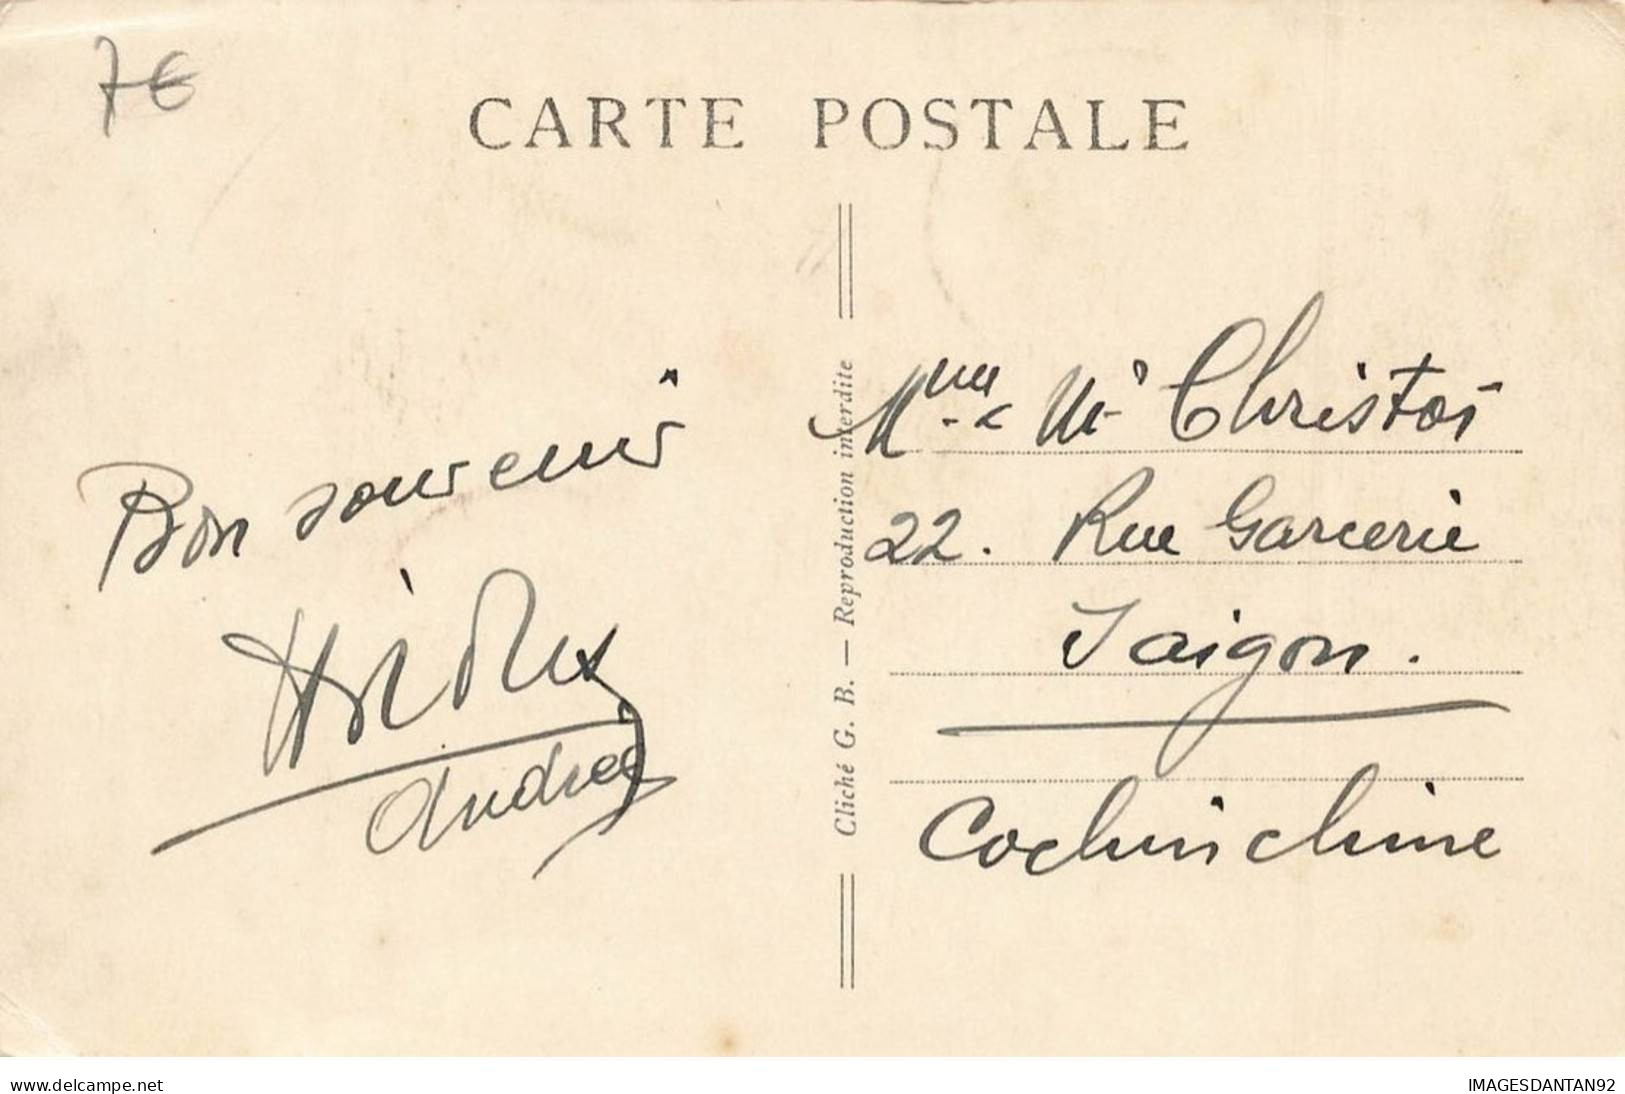 7€
CARTE POSTALE
Bon souvenir
Andrée
Cliché G. B. — Reproduction interdite
Mme & Mr Christos
22. Rue Garcerie
Saigon.
Cochinchine
www.delcampe.net
IMAGESDANTAN92